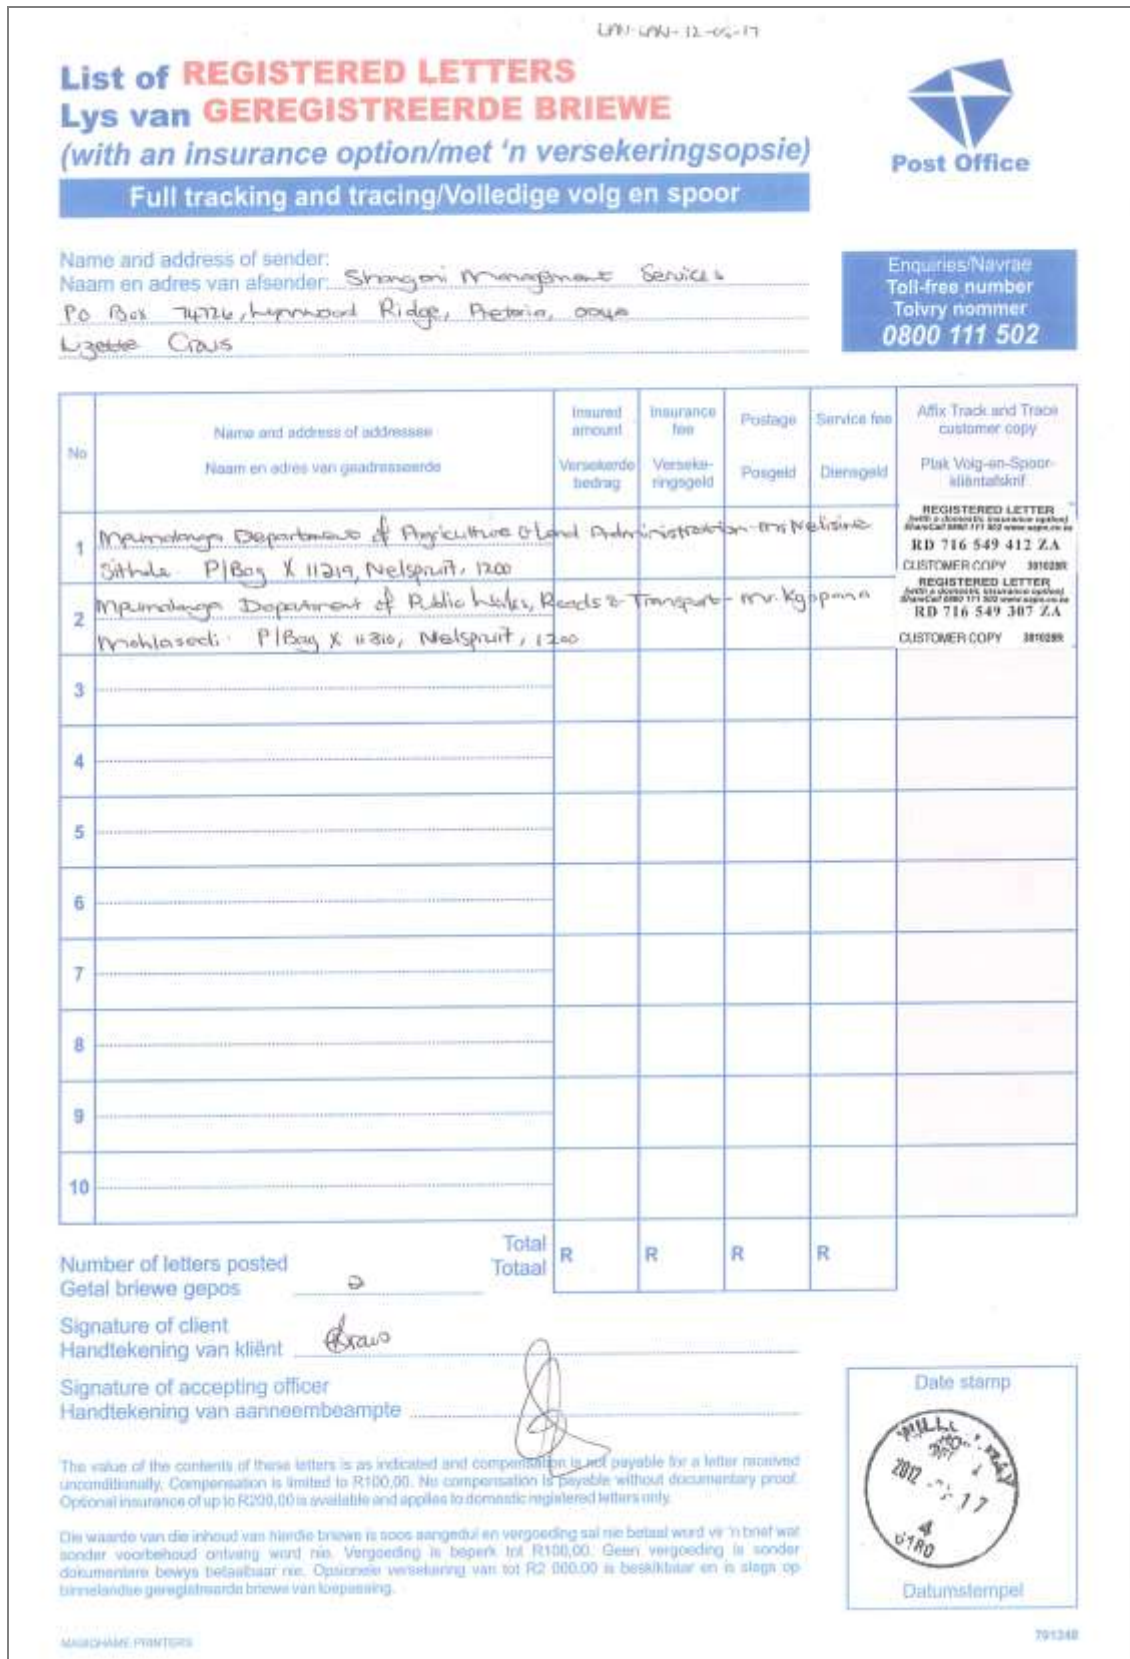 LAN-LAN-12-05-17
List of REGISTERED LETTERS
Lys van GEREGISTREERDE BRIEWE
(with an insurance option/met 'n versekeringsopsie)
Full tracking and tracing/Volledige volg en spoor
Post Office
Name and address of sender:
Naam en adres van afsender: Shangoni Management Services
PO Box 74726, Lynnwood Ridge, Pretoria, 0040
Lizette Crous
Enquiries/Navrae
Toll-free number
Tolvry nommer
0800 111 502
No
Name and address of addressee
Naam en adres van geadresseerde
Insured amount
Versekerde bedrag
Insurance fee
Verseke-ringsgeld
Postage
Posgeld
Service fee
Diensgeld
Affix Track and Trace customer copy
Plak Volg-en-Spoor-kliëntafskrif
1 Mpumalanga Department of Agriculture & Land Administration - Ms Nelisiwe
Sithole P/Bag X 11219, Nelspruit, 1200
REGISTERED LETTER
(with a domestic insurance option)
ShareCall 0860 111 502 www.sapo.co.za
RD 716 549 412 ZA
CUSTOMER COPY 301028R
2 Mpumalanga Department of Public Works, Roads & Transport - Mr. Kgopana
Mohlasedi P/Bag X 11310, Nelspruit, 1200
REGISTERED LETTER
(with a domestic insurance option)
ShareCall 0860 111 502 www.sapo.co.za
RD 716 549 307 ZA
CUSTOMER COPY 301028R
3
4
5
6
7
8
9
10
Number of letters posted
Getal briewe gepos 2
Total
Totaal
R R R R
Signature of client
Handtekening van kliënt
Signature of accepting officer
Handtekening van aanneembeampte
The value of the contents of these letters is as indicated and compensation is not payable for a letter received
unconditionally. Compensation is limited to R100,00. No compensation is payable without documentary proof.
Optional insurance of up to R200,00 is available and applies to domestic registered letters only.
Die waarde van die inhoud van hierdie briewe is soos aangedui en vergoeding sal nie betaal word vir 'n brief wat
sonder voorbehoud ontvang word nie. Vergoeding is beperk tot R100,00. Geen vergoeding is sonder
dokumentêre bewys betaalbaar nie. Opsionele versekering van tot R2 000.00 is beskikbaar en is slegs op
binnelandse geregistreerde briewe van toepassing.
Date stamp
2012
17
4
0180
Datumstempel
791248